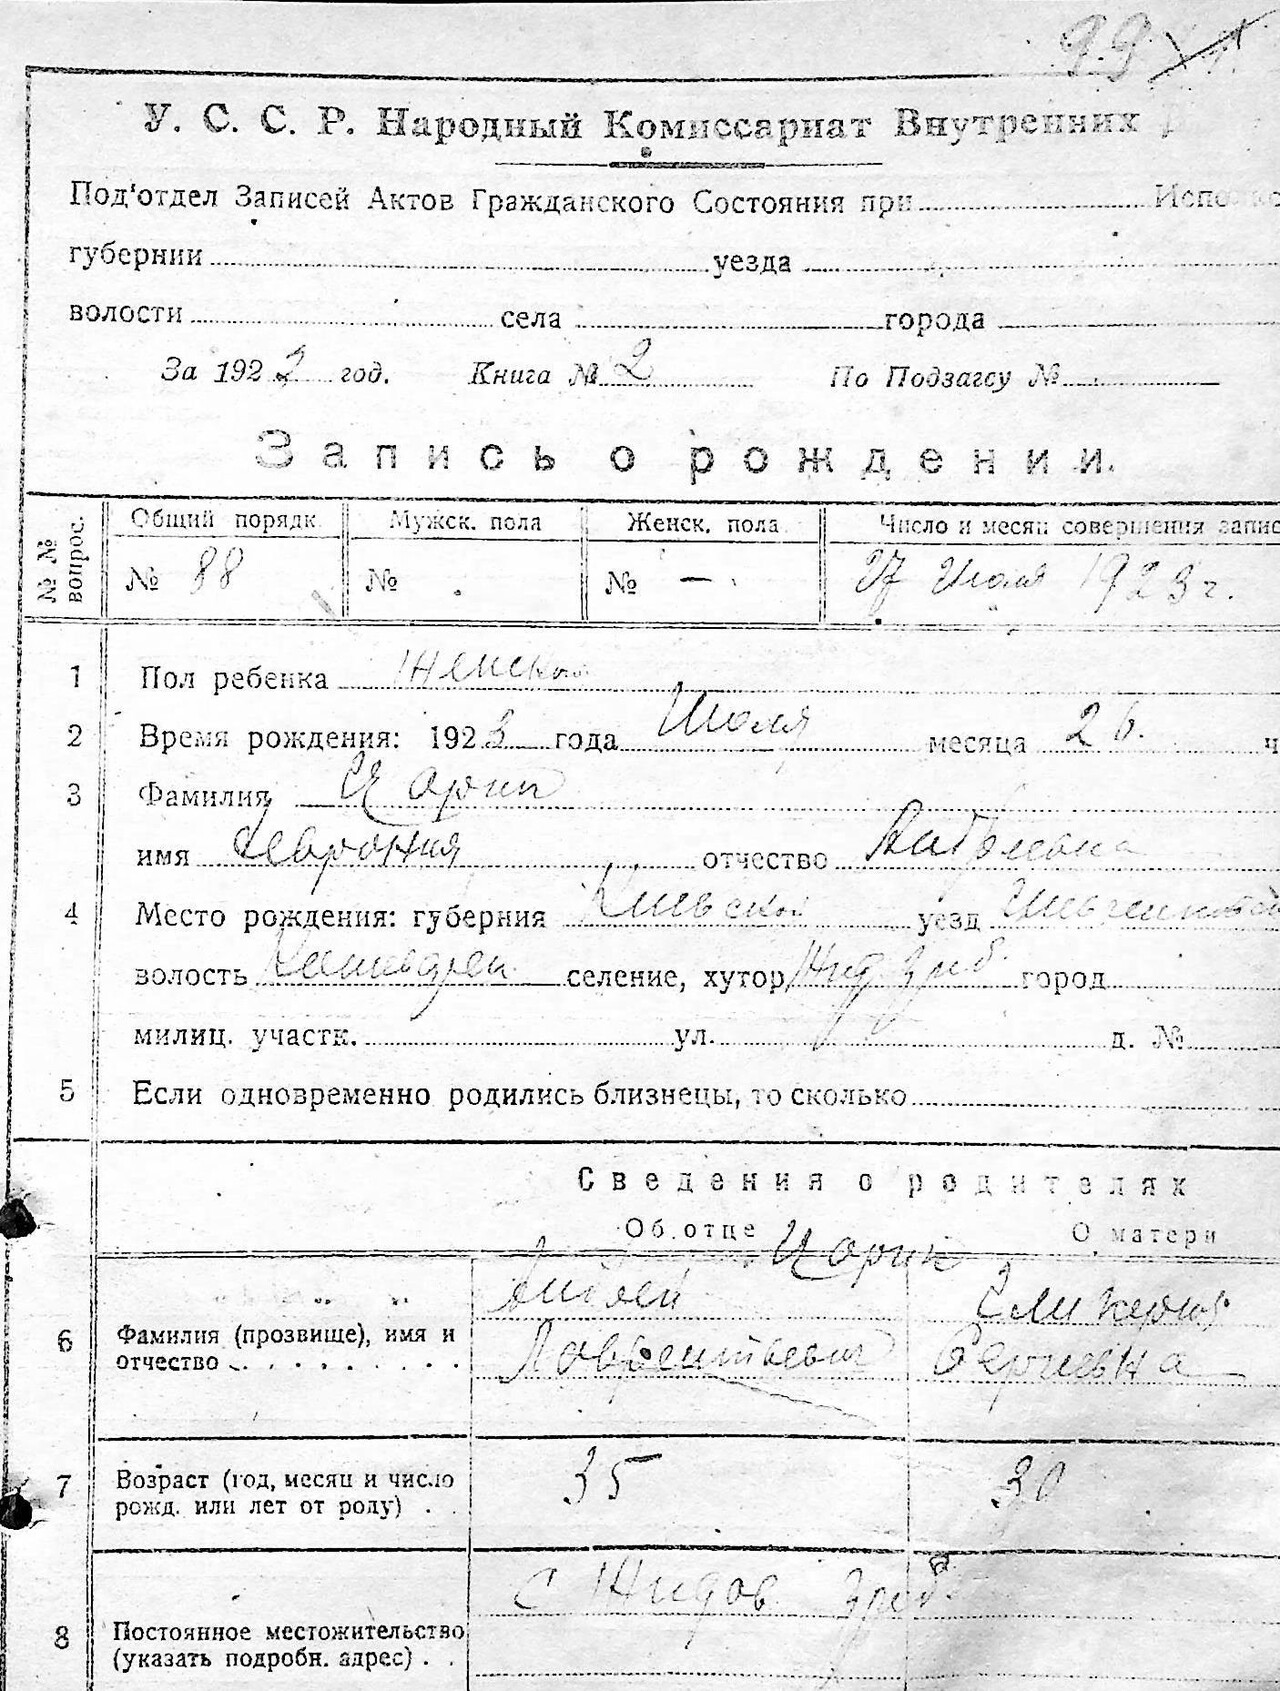 99
У. С. С. Р. Народный Комиссариат Внутренних
Под'отдел Записей Актов Гражданского Состояния при
губернии уезда
волости села города
За 1922 год. Книга № 2 По Подзагсу №
Запись о рождении.
№ № вопрос. Общий порядк. Мужск. пола Женск. пола Число и месяц совершения запис
№ 88 № № — 27 Июля 1923 г.
1 Пол ребенка Женской
2 Время рождения: 1923 года Июля месяца 26. ч
3 Фамилия Цорип
имя Хеврония отчество Андреевна
4 Место рождения: губерния Киевской уезд
волость селение, хутор Жид Греб. город
милиц. участк. ул. д. №
5 Если одновременно родились близнецы, то сколько
Сведения о родителях
Об отце О матери
6 Фамилия (прозвище), имя и отчество Андрей Лаврентьевич Гликерия Сергиевна
7 Возраст (год, месяц и число рожд. или лет от роду) 35 30
8 Постоянное местожительство (указать подробн. адрес) С Жидов Греб.